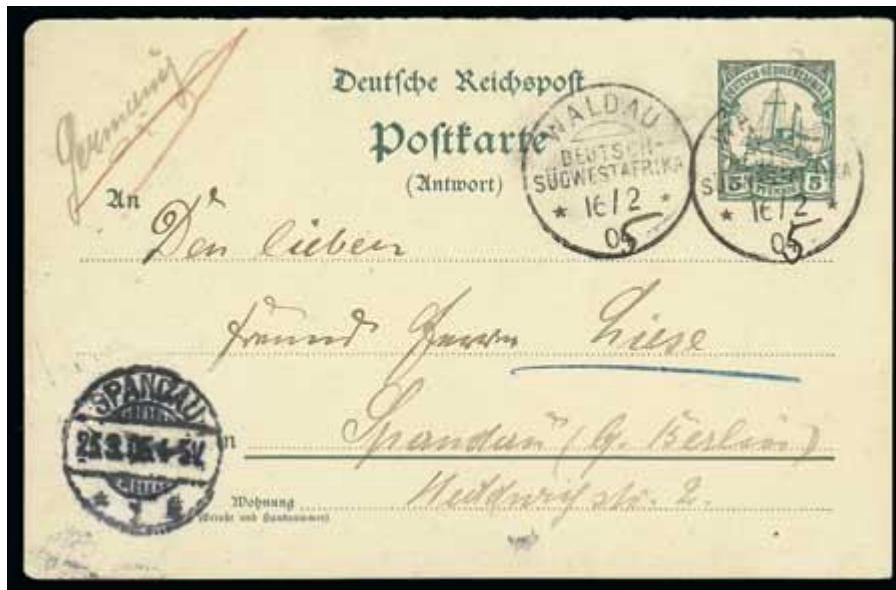 Germany
Deutsche Reichspost
Postkarte
(Antwort)
WALDAU
DEUTSCH-
SÜDWESTAFRIKA
* 16/2 *
05
DEUTSCH-SÜDWESTAFRIKA
5 PFENNIG 5
* 16/2 *
05
An
Den lieben
Freund Herrn Liese
SPANDAU
in Spandau (b. Berlin)
str. 2.
Wohnung
(Straße und Hausnummer)